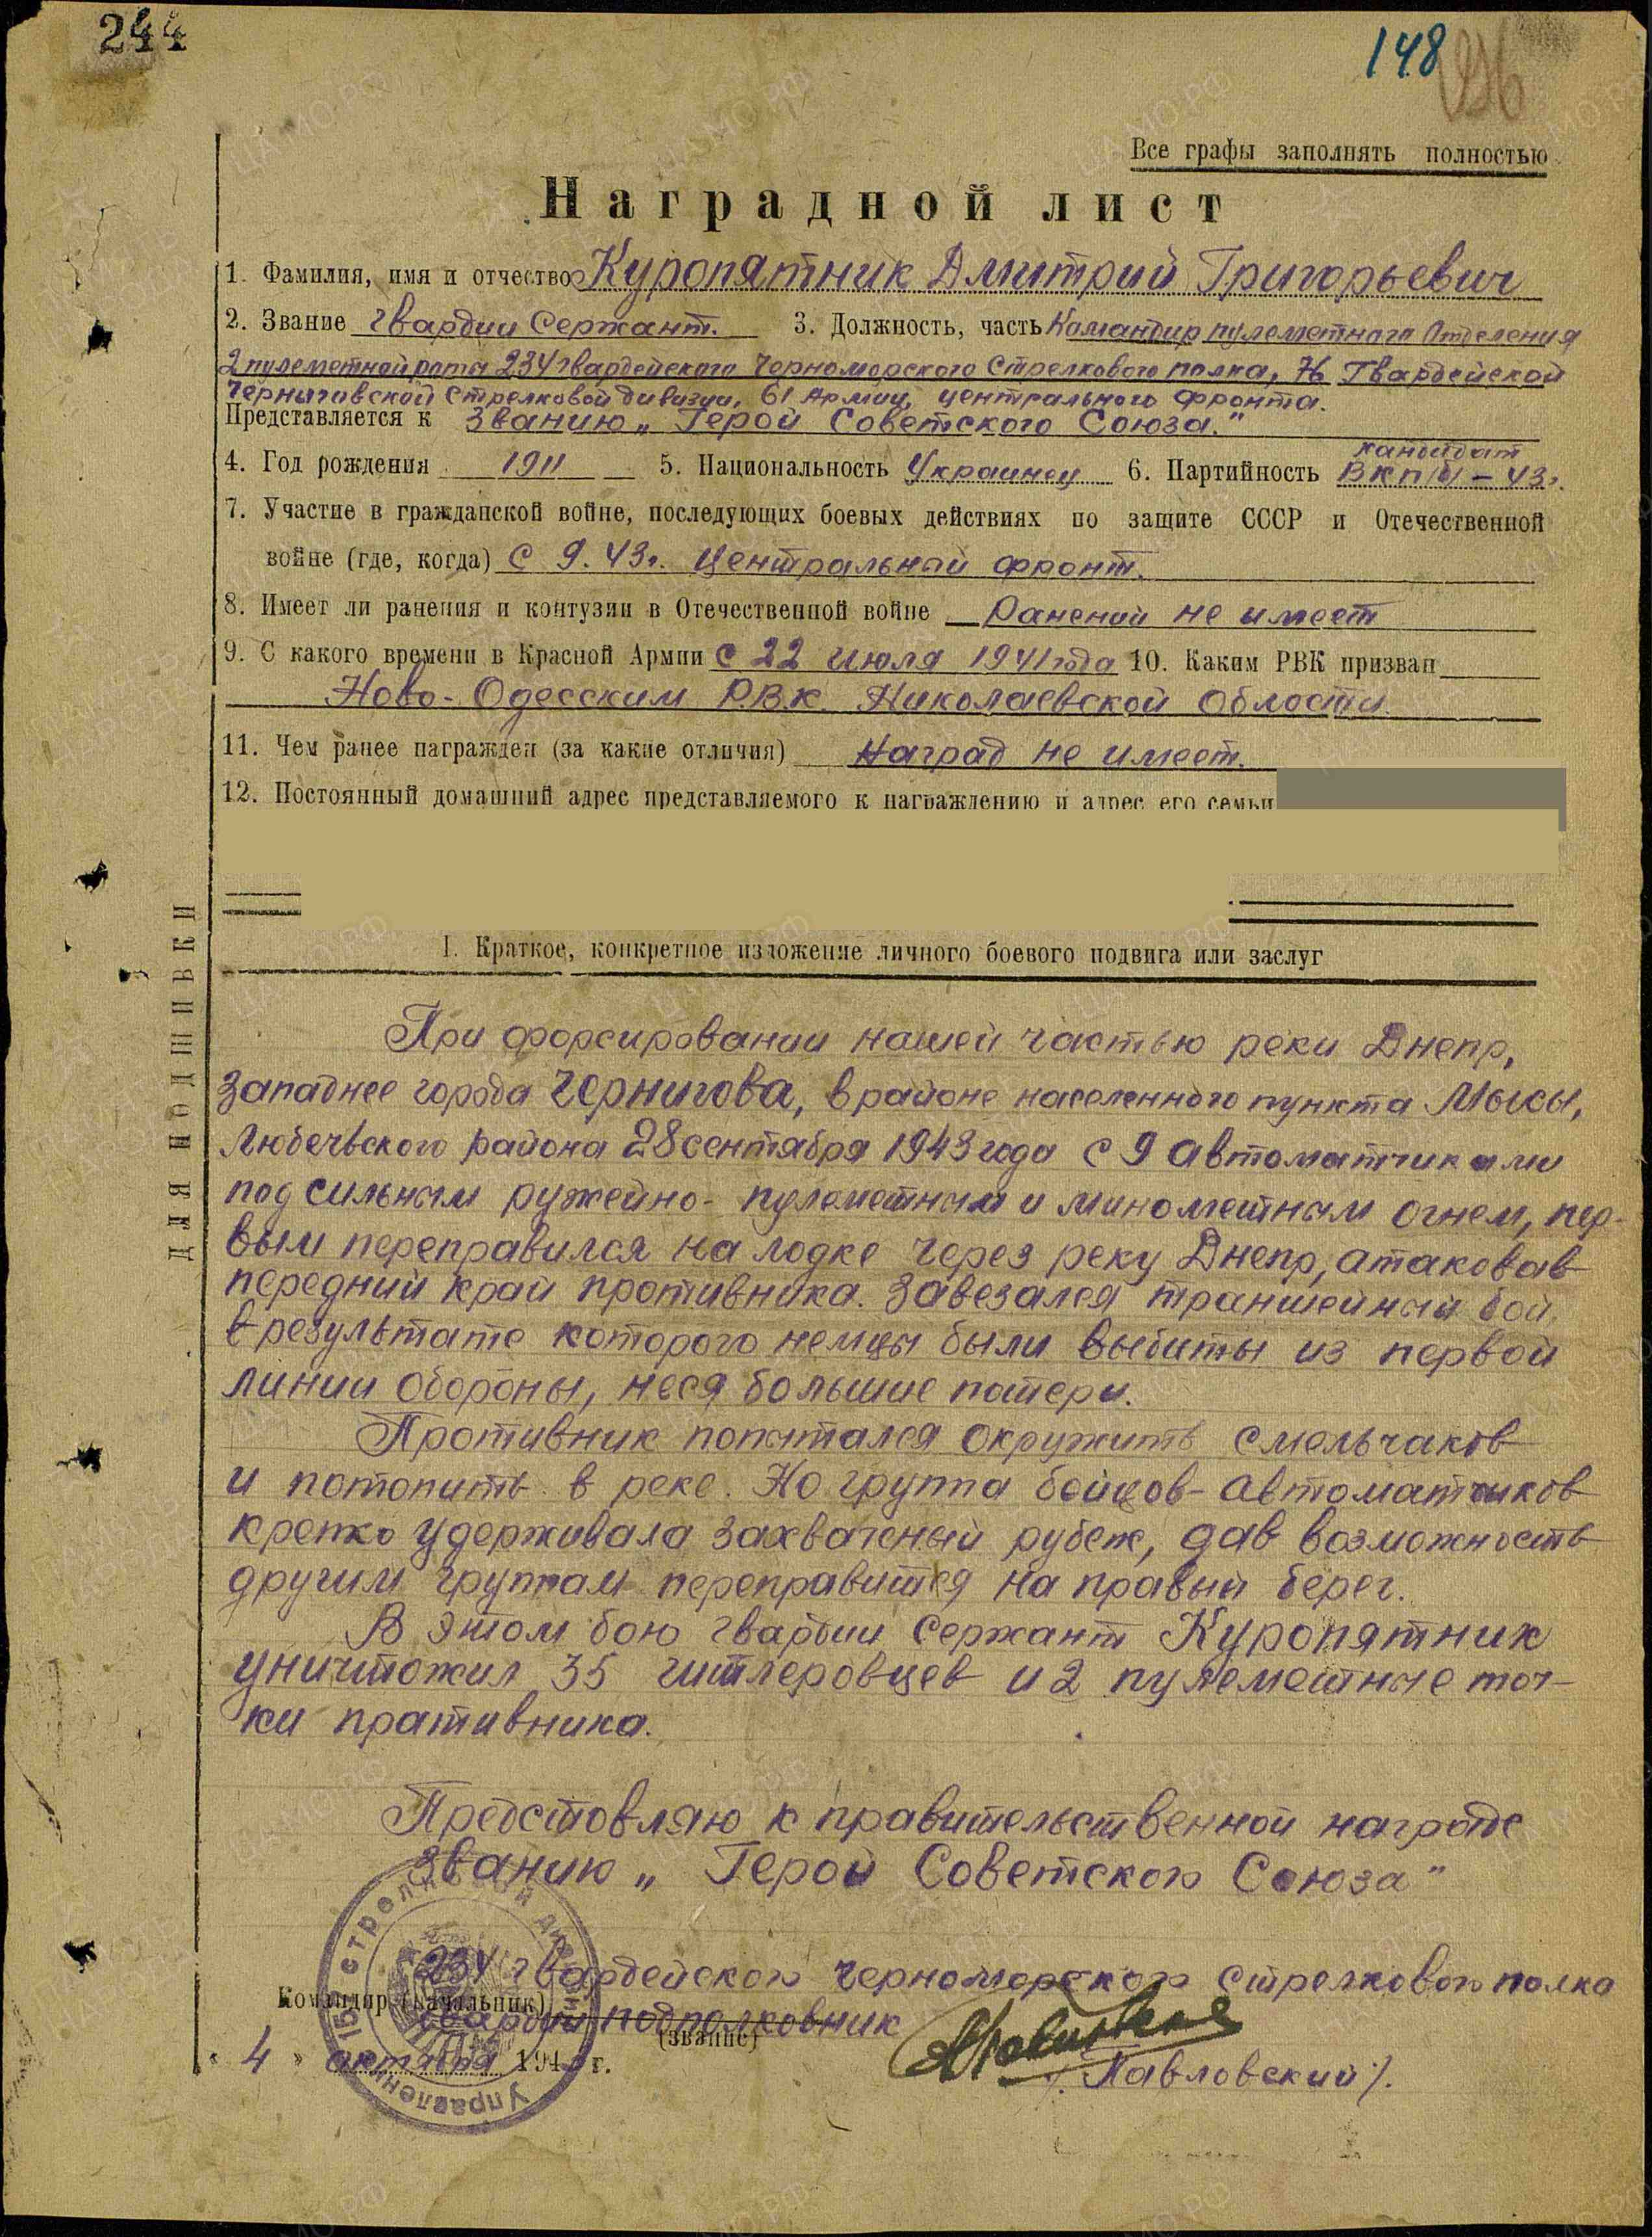 244
148
Все графы заполнять полностью
Наградной лист
1. Фамилия, имя и отчество Куропятник Дмитрий Григорьевич
2. Звание гвардии Сержант. 3. Должность, часть Командир пулеметного Отделения
2 пулеметной роты 234 гвардейского Черноморского Стрелкового полка, 76 Гвардейской
Черниговской Стрелковой дивизии, 61 Армии, центрального фронта.
Представляется к Званию „ Герой Советского Союза."
кандидат
4. Год рождения 1911 5. Национальность Украинец 6. Партийность ВКП(б) – 43г.
7. Участие в гражданской войне, последующих боевых действиях по защите СССР и Отечественной
войне (где, когда) С 9. 43г. Центральный фронт.
8. Имеет ли ранения и контузии в Отечественной войне Ранений не имеет
9. С какого времени в Красной Армии с 22 июля 1941 года 10. Каким РВК призван
Ново-Одесским Р.В.К. Николаевской Области.
11. Чем ранее награжден (за какие отличия) Наград не имеет.
12. Постоянный домашний адрес представляемого к награждению и адрес его семьи
ДЛЯ ПОДШИВКИ
I. Краткое, конкретное изложение личного боевого подвига или заслуг
При форсировании нашей частью реки Днепр,
западнее города Чернигова, в районе населенного пункта Мысы,
Любечьского района 28 сентября 1943 года с 9 автоматчиками
под сильным ружейно- пулеметным и минометным огнем, пер-
вым переправился на лодке через реку Днепр, атаковав
передний край противника. Завезался траншейный бой,
в результате которого немцы были выбиты из первой
линии обороны, неся большие потери.
Противник попытался окружить смельчаков
и потопить в реке. Но группа бойцов-автоматчиков
крепко удерживала захваченый рубеж, дав возможность
другим группам переправится на правый берег.
В этом бою гвардии Сержант Куропятник
уничтожил 35 гитлеровцев и 2 пулеметные точ-
ки пративника.
Предстовляю к правительственной награде
званию „ Герой Советского Союза"
234 гвардейского черноморского стрелкового полка
Командир (начальник)
гвардии подполковник
(звание)
/. Павловский /.
« 4 » октября 194 г.
стрелковой дивизии
Управление